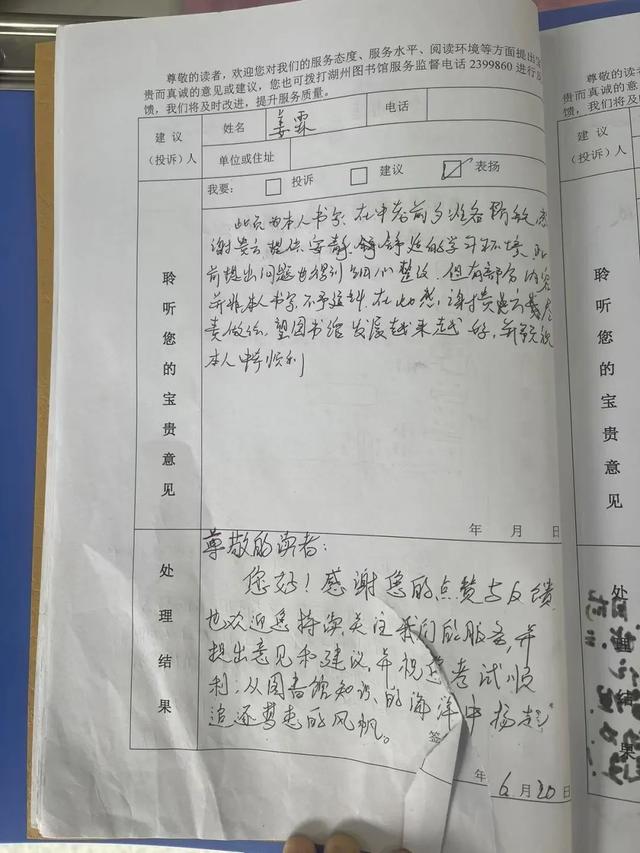 尊敬的读者，欢迎您对我们的服务态度、服务水平、阅读环境等方面提出宝
贵而真诚的意见或建议，您也可拨打湖州图书馆服务监督电话 2399860 进行反
馈，我们将及时改进，提升服务质量。
建 议
（投诉）人
姓名
姜霖
电话
单位或住址
我要：
投诉
建议
表扬
聆听您的宝贵意见
此页为本人书写，在中考前夕准备阶段感
谢贵云提供安静、舒适的学习环境
前提出问题也得到 们整改，但有部分内容
并非本人书写，不予延续，在此感谢贵
责做法，望图书馆发展越来越好，并预祝
本人中考顺利
年 月 日
处理结果
尊敬的读者：
您好！感谢您的点赞与反馈
也欢迎您持续关注我们的服务，并
提出意见和建议，并祝您考试顺
利；从图书馆知识的海洋中扬起
追逐梦想的风帆。
签
年 6 月 20 日
尊敬的读者
贵而真诚的意见
馈，我们将及时
建 议
（投诉）人
聆听您的宝贵意见
处理结果